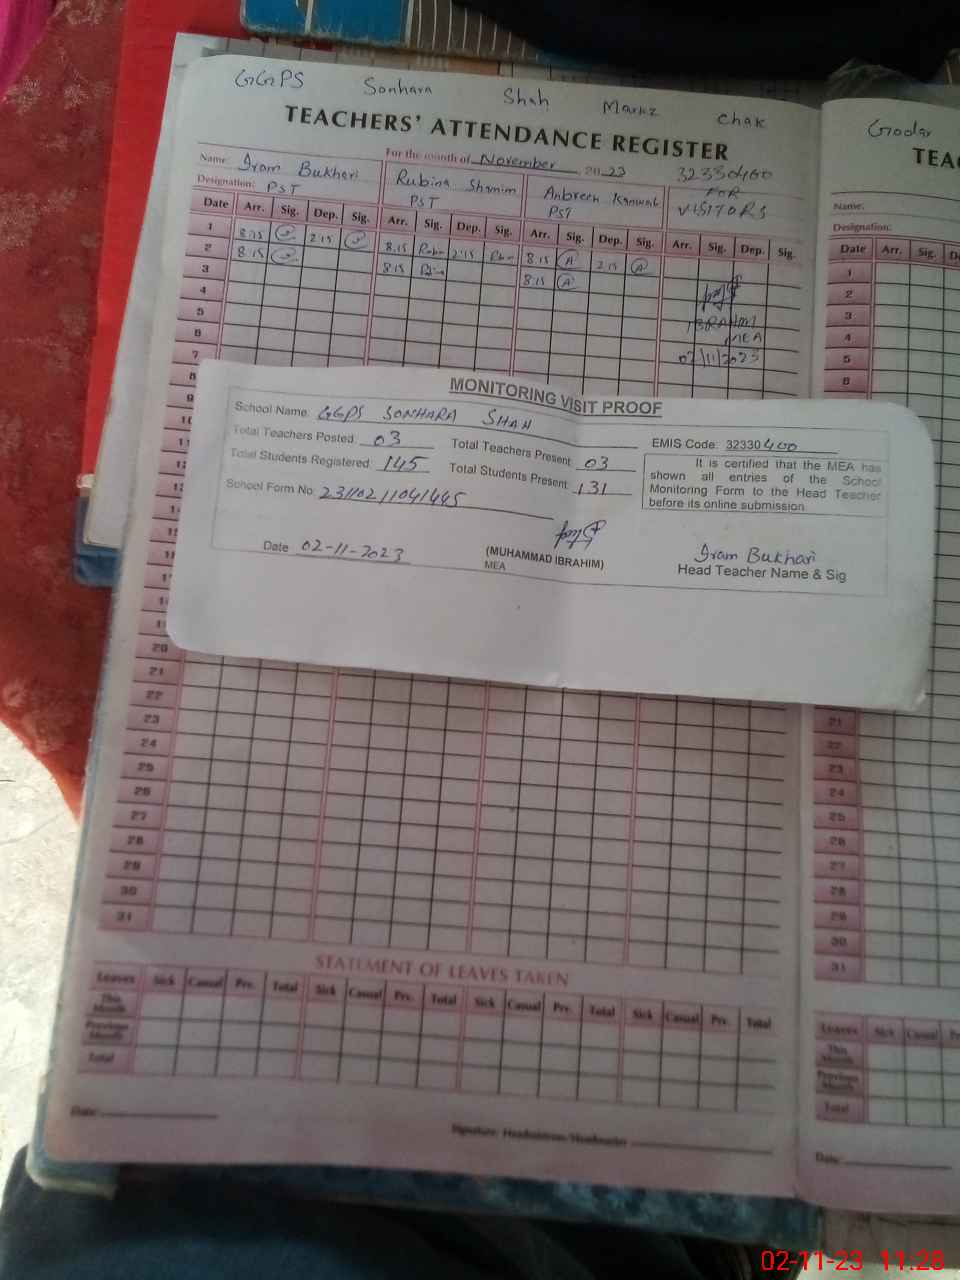 GGPS Sonhara Shah Markz Chak
TEACHERS' ATTENDANCE REGISTER
For the month of November 2023
Name: Iram Bukhari Rubina Shamim Anbreen Kanwal 32330400
Designation: PST PST PST FOR VISITORS
Date Arr. Sig. Dep. Sig. Arr. Sig. Dep. Sig. Arr. Sig. Dep. Sig. Arr. Sig. Dep. Sig.
1 8:15 2:15 8:15 2:15 8:15 2:15
2 8:15 8:15 8:15
3
4 IBRAHIM
5 MEA
6 02/11/2023
7
8
9
10
11
MONITORING VISIT PROOF
School Name: GGPS SONHARA SHAH
EMIS Code: 32330400
Total Teachers Posted: 03 Total Teachers Present: 03
Total Students Registered: 145 Total Students Present: 131
School Form No: 23110211041445
It is certified that the MEA has
shown all entries of the School
Monitoring Form to the Head Teacher
before its online submission.
Date 02-11-2023
(MUHAMMAD IBRAHIM)
MEA
Iram Bukhari
Head Teacher Name & Sig
20
21
22
23
24
25
26
27
28
29
30
31
STATEMENT OF LEAVES TAKEN
Leaves Sick Casual Prv. Total Sick Casual Prv. Total Sick Casual Prv. Total Sick Casual Prv. Total
This Month
Previous Month
Total
Date:
Signature: Headmistress/Headmaster
Godar
TEA
Name:
Designation:
Date Arr. Sig. De
1
2
3
4
5
6
21
22
23
24
25
26
27
28
29
30
31
Leaves Sick Casual Pr
This Month
Previous Month
Total
Date:
02-11-23 11:28